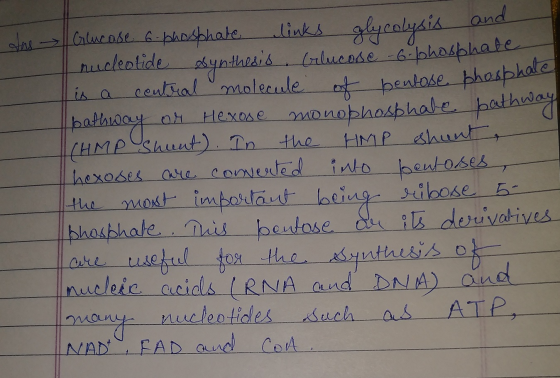 Ans → Glucose 6-phosphate links glycolysis and
nucleotide synthesis. Glucose-6-phosphate
is a central molecule of pentose phosphate
pathway or Hexose monophosphate pathway
(HMP Shunt). In the HMP shunt,
hexoses are converted into pentoses,
the most important being ribose 5-
phosphate. This pentose or its derivatives
are useful for the synthesis of
nucleic acids (RNA and DNA) and
many nucleotides such as ATP,
NAD+, FAD and CoA.